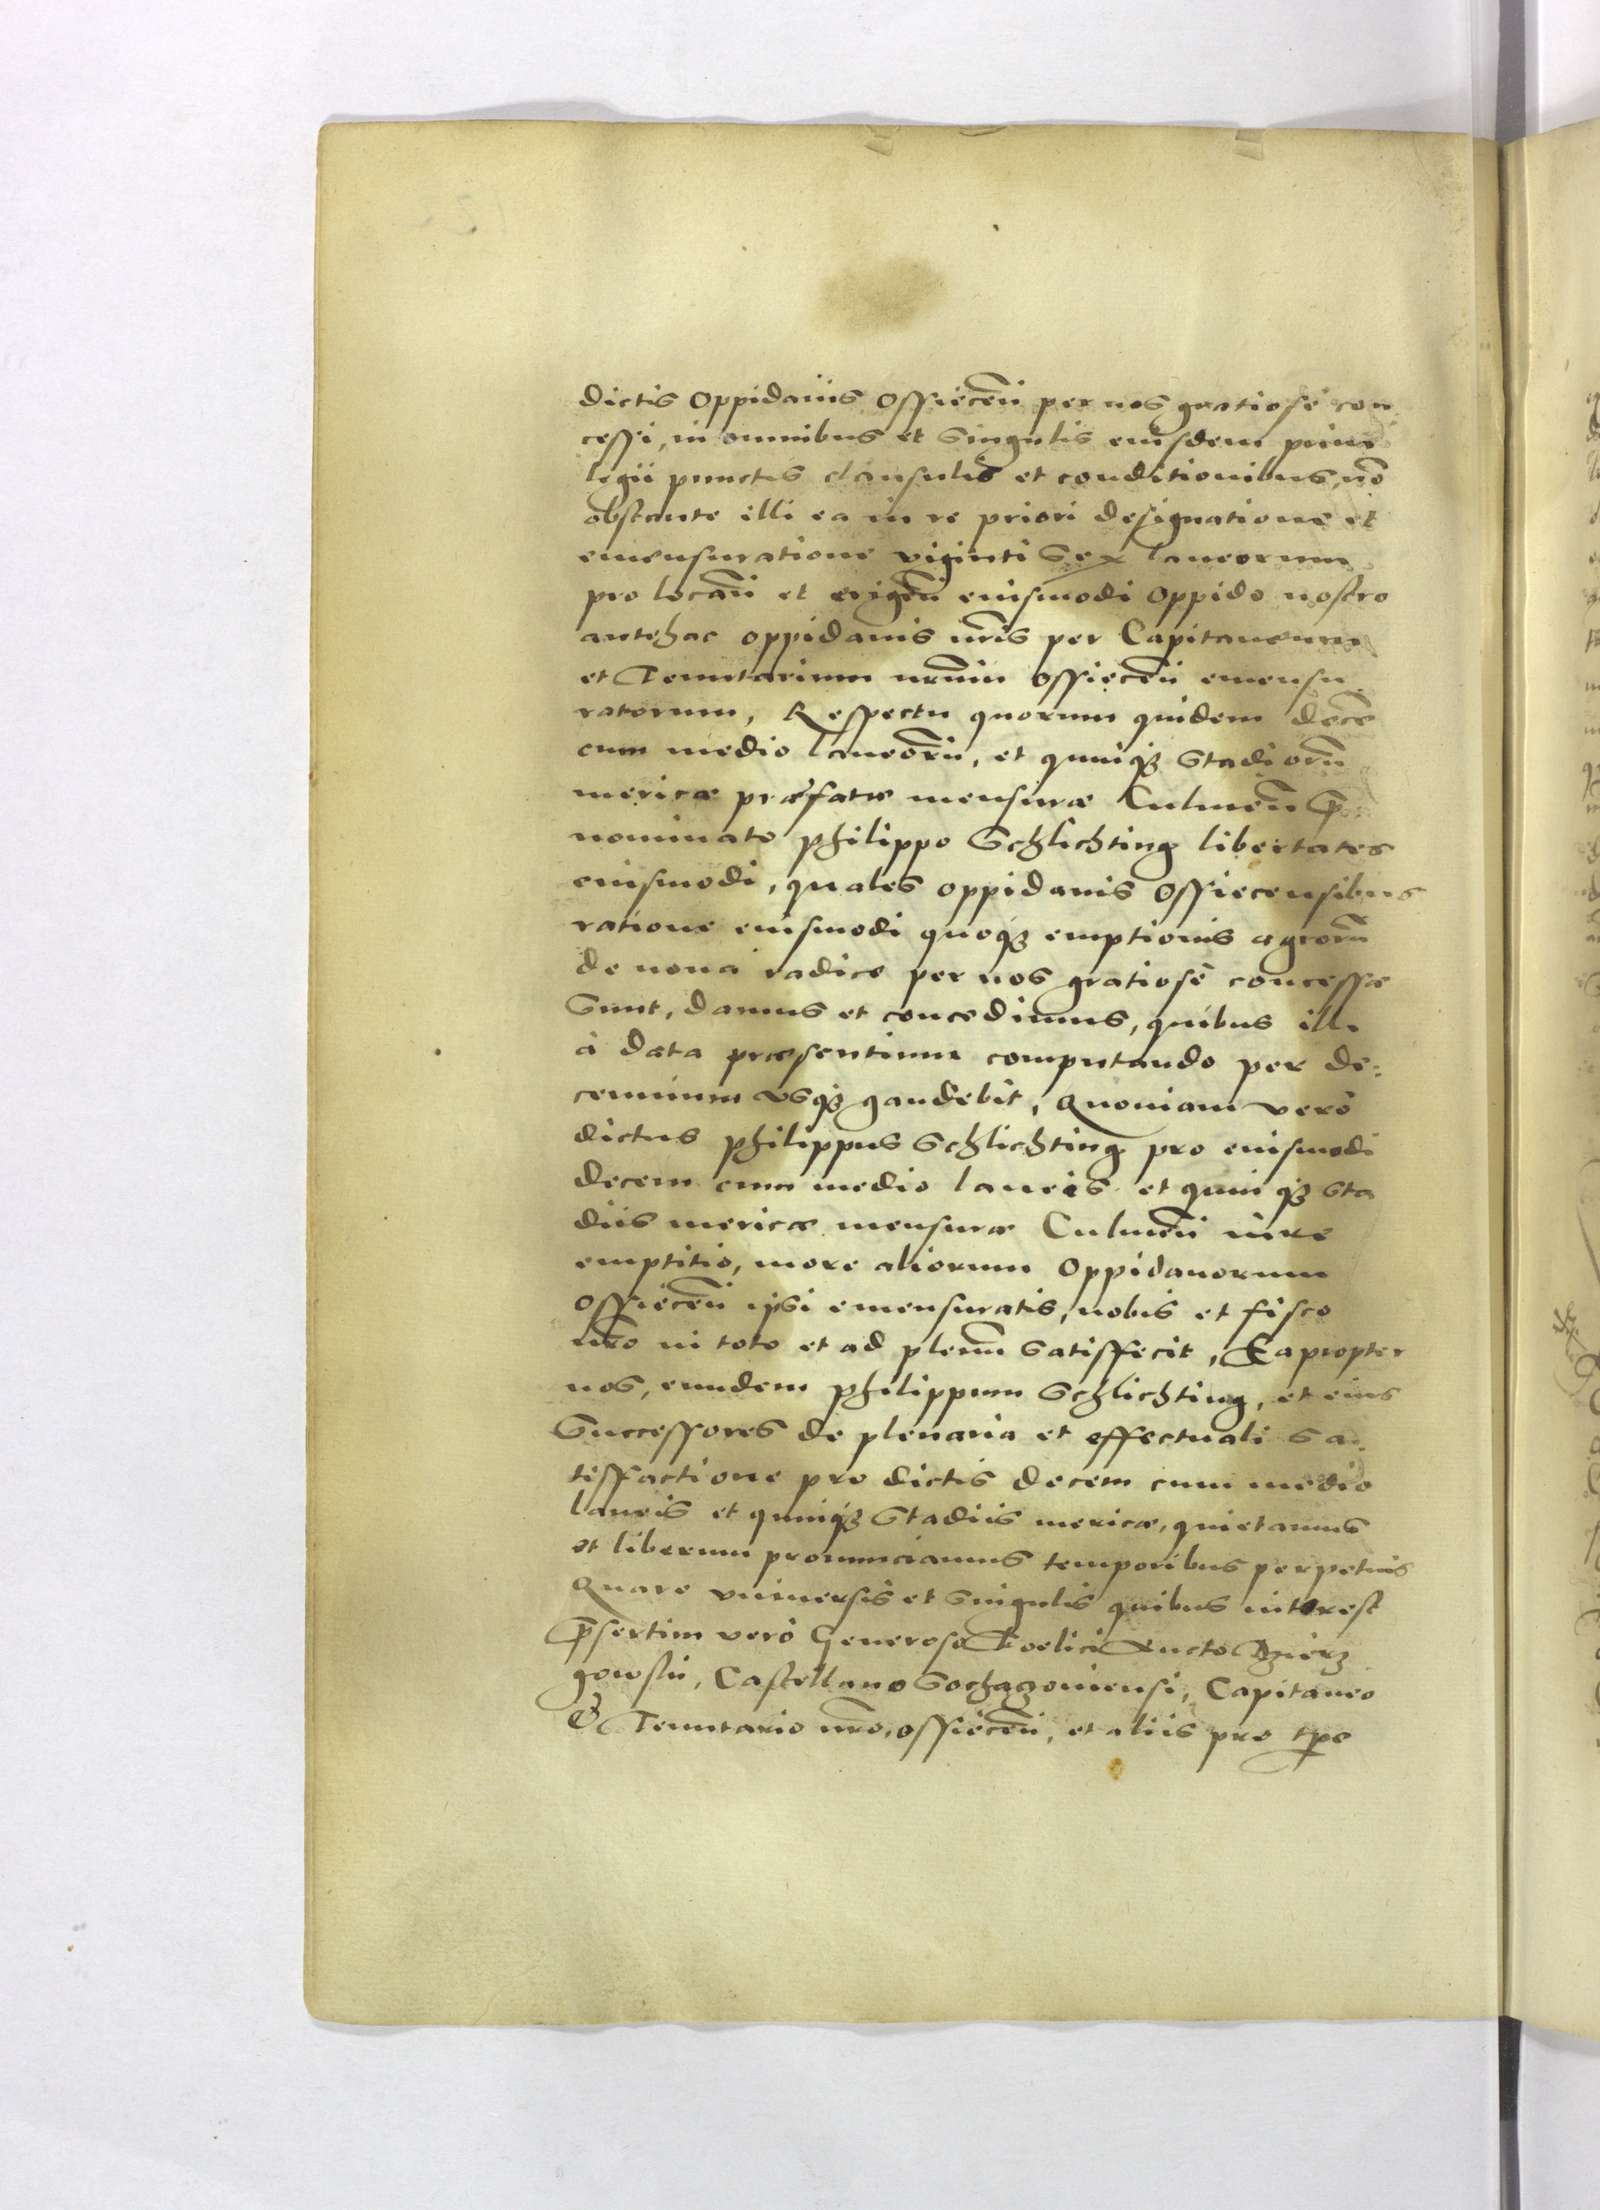 dictis Oppidanis Ossiecen̄ per nos gratiosè con
cessi, in omnibus et singulis eiusdem priui
legii punctis clausulis et conditionibus, nō
obstante illi ea in re priori designatione et
emensuratione viginti sex laneorum
pro locan̄ et erigen̄ eiusmodi oppido nostro
antehac oppidanis nr̄is per Capitaneum
et Tenutarium nr̄um Ossiecen̄ emensu
ratorum, Respectu quorum quidem decē
cum medio laneorū, et quinqȝ stadiorū
mericæ præfatæ mensuræ Culmen̄ p̄
nominato Philippo Schlichting libertates
eiusmodi, quales oppidanis Ossiecensibus
ratione eiusmodi quoqȝ emptionis agrorū
de noua radice per nos gratiosè concessæ
sunt, damus et concedimus, quibus illi
à data præsentium computando per de:
cennium vsqȝ gaudebit, Quoniam verò
dictus Philippus Schlichting pro eiusmodi
decem cum medio laneis et quinqȝ sta
diis mericæ mensuræ Culmen̄ iure
emptitio, more aliorum Oppidanorum
Ossiecen̄ ipsi emensuratis, nobis et fisco
nr̄o in toto et ad plenū satisfecit, Eapropter
nos, eundem Philippum Schlichting, et eius
Successores de plenaria et effectuali sa
tisfactione pro dictis decem cum medio
laneis et quinqȝ stadiis mericæ, quietamus
et liberum pronunciamus temporibus perpetuis
Quare vniuersis et singulis quibus interest
p̄sertim verò Generoso Foelici Aucto Zgierz
gowski, Castellano Sochaczouiensi, Capitaneo
& Tenutario nr̄o, Ossiecen̄, et aliis pro tp̄e